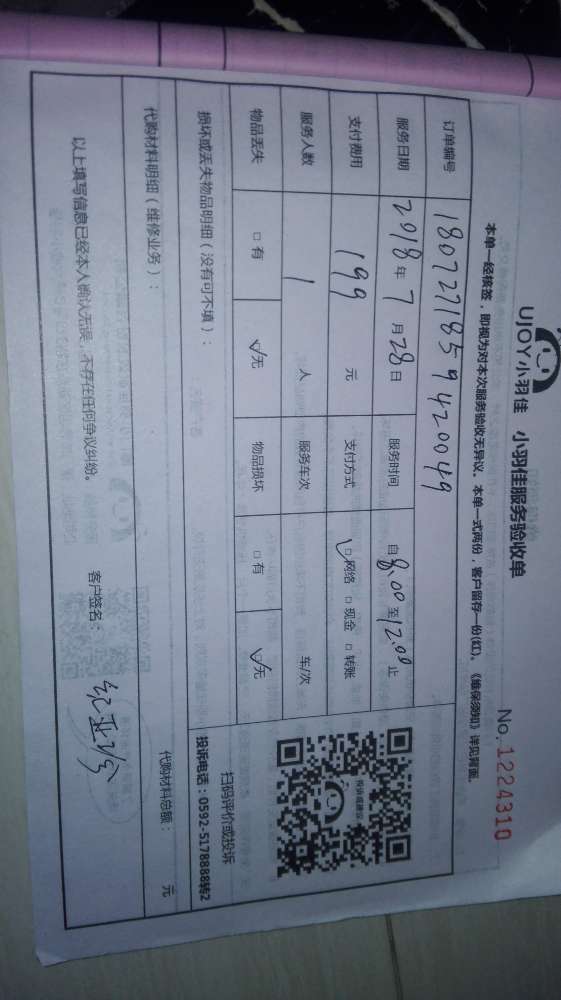 UJOY小羽佳 小羽佳服务验收单
No. 1224310
本单一经核签，即视为对本次服务验收无异议。本单一式两份，客户留存一份(红)。《维保须知》详见背面。
订单编号 180727185942 0049
服务日期 2018年7月28日 服务时间 自8:00至12:00止
支付费用 199 元 支付方式 ☑网络 □现金 □转账
服务人数 1 人 服务车次 车/次
物品丢失 □有 ☑无 物品损坏 □有 ☑无
投诉或建议
扫码评价或投诉
投诉电话：0592-5178888转2
损坏或丢失物品明细（没有可不填）：
代购材料明细（维修业务）：
代购材料总额： 元
以上填写信息已经本人确认无误，不存在任何争议纠纷。
客户签名：